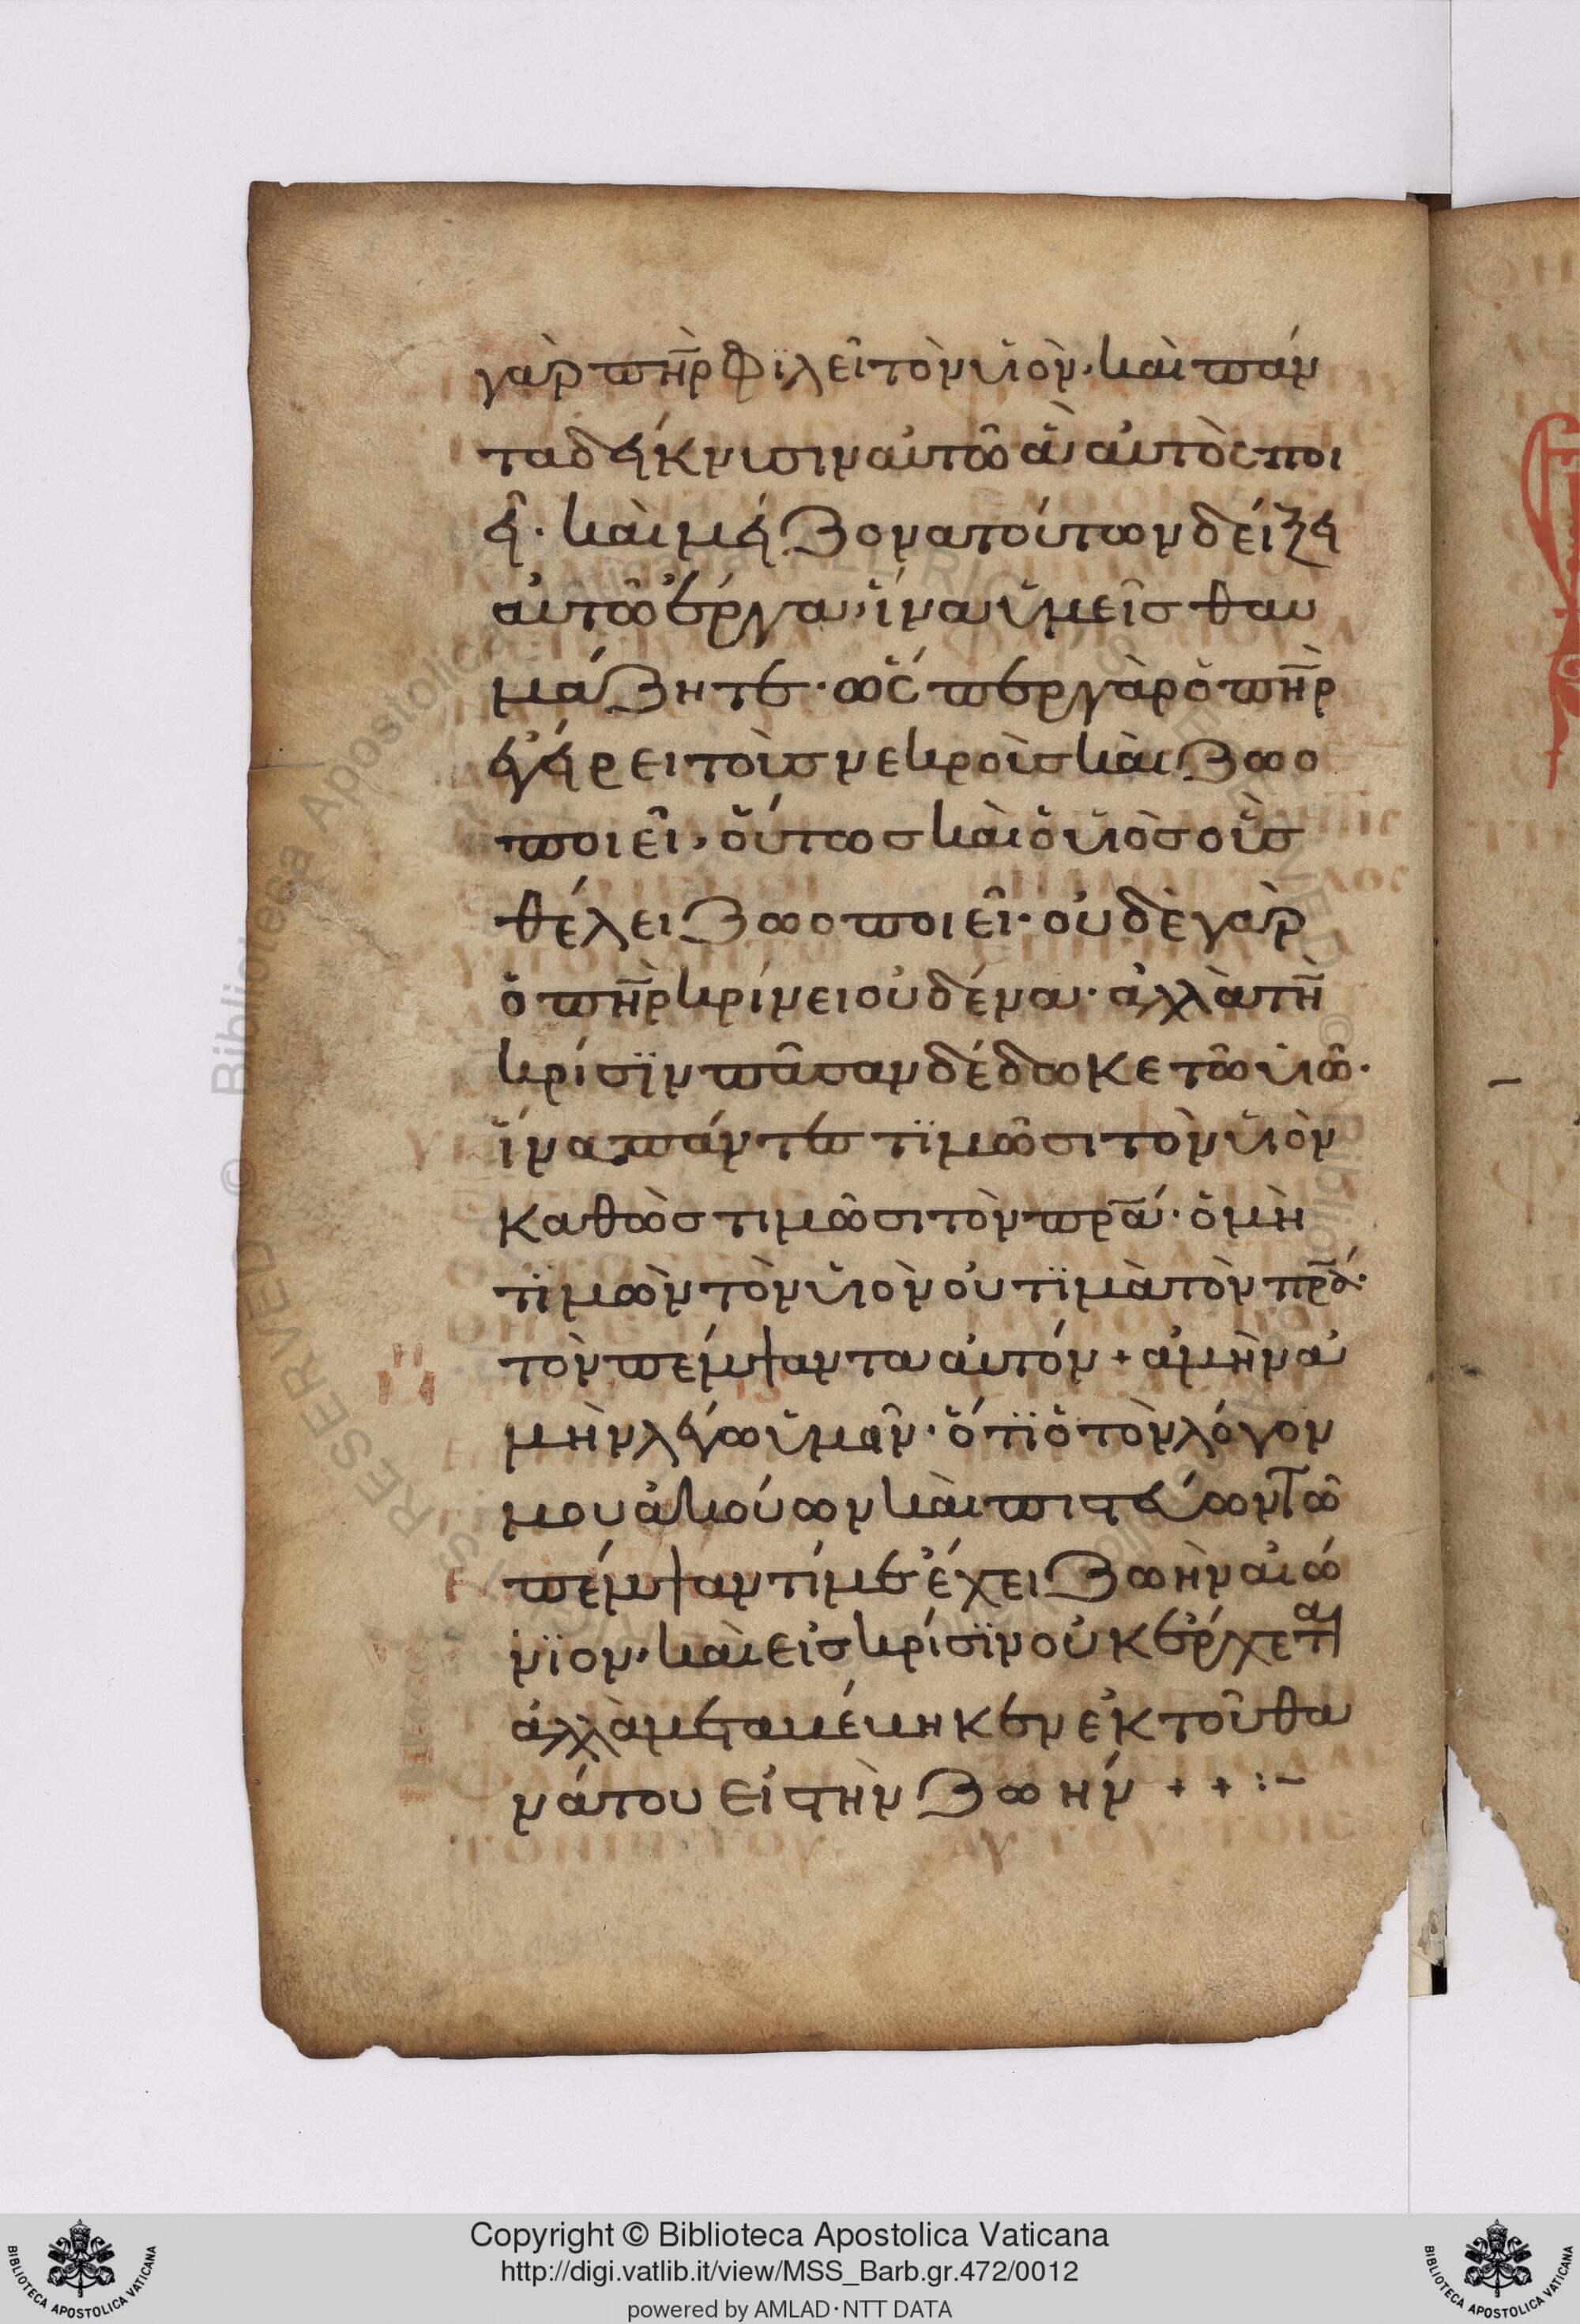 γὰρ π̅η̅ρ̅ φϊλεῖ τὸν υἱὸν, καὶ πάν
τα δείκνυσιν αὐτῶ ἃ αὐτὸς ποι
εῖ· καὶ μείζονα τούτων δείξει
αὐτῶ ἔργα, ἵνα ὑμεῖς θαυ
μάζητε· ὥσπερ γὰρ ὁ π̅η̅ρ̅
ἐγείρει τοῖς νεκροῖς καὶ ζωο
ποιεῖ, οὕτως καὶ ὁ υἱὸς οὓς
θέλει ζωοποιεῖ· οὐδὲ γὰρ
ὁ π̅η̅ρ̅ κρίνει οὐδένα· ἀλλὰ τὴ̅
κρίσϊν πᾶσαν δέδωκε τῶ υἱῶ·
ἵνα πάντες τϊμῶσι τὸν υἱὸν
καθὼς τιμῶσι τὸν π̅ρ̅α̅· ὁ μὴ
τϊμὼν τὸν υἱὸν οὐ τϊμὰ τὸν π̅ρ̅α̅·
τὸν πέμψαντα αὐτόν + ἀμὴν ἀ
μὴν λέγω ὑμῖν· ὅτϊ ὁ τὸν λόγον
μου ἀκούων καὶ πιστεύων τῶ
πέμψαντί με ἔχει ζωὴν αἰώ
νϊον, καὶ εἰς κρίσϊν οὐκ ἔρχεται
ἀλλὰ μεταβέβηκεν ἐκ τοῦ θα
νάτου εἰ στὴν ζωήν + + :–
© Biblioteca Apostolica Vaticana
Copyright © Biblioteca Apostolica Vaticana
http://digi.vatlib.it/view/MSS_Barb.gr.472/0012
powered by AMLAD·NTT DATA
BIBLIOTECA APOSTOLICA VATICANA
BIBLIOTECA APOSTOLICA VATICANA